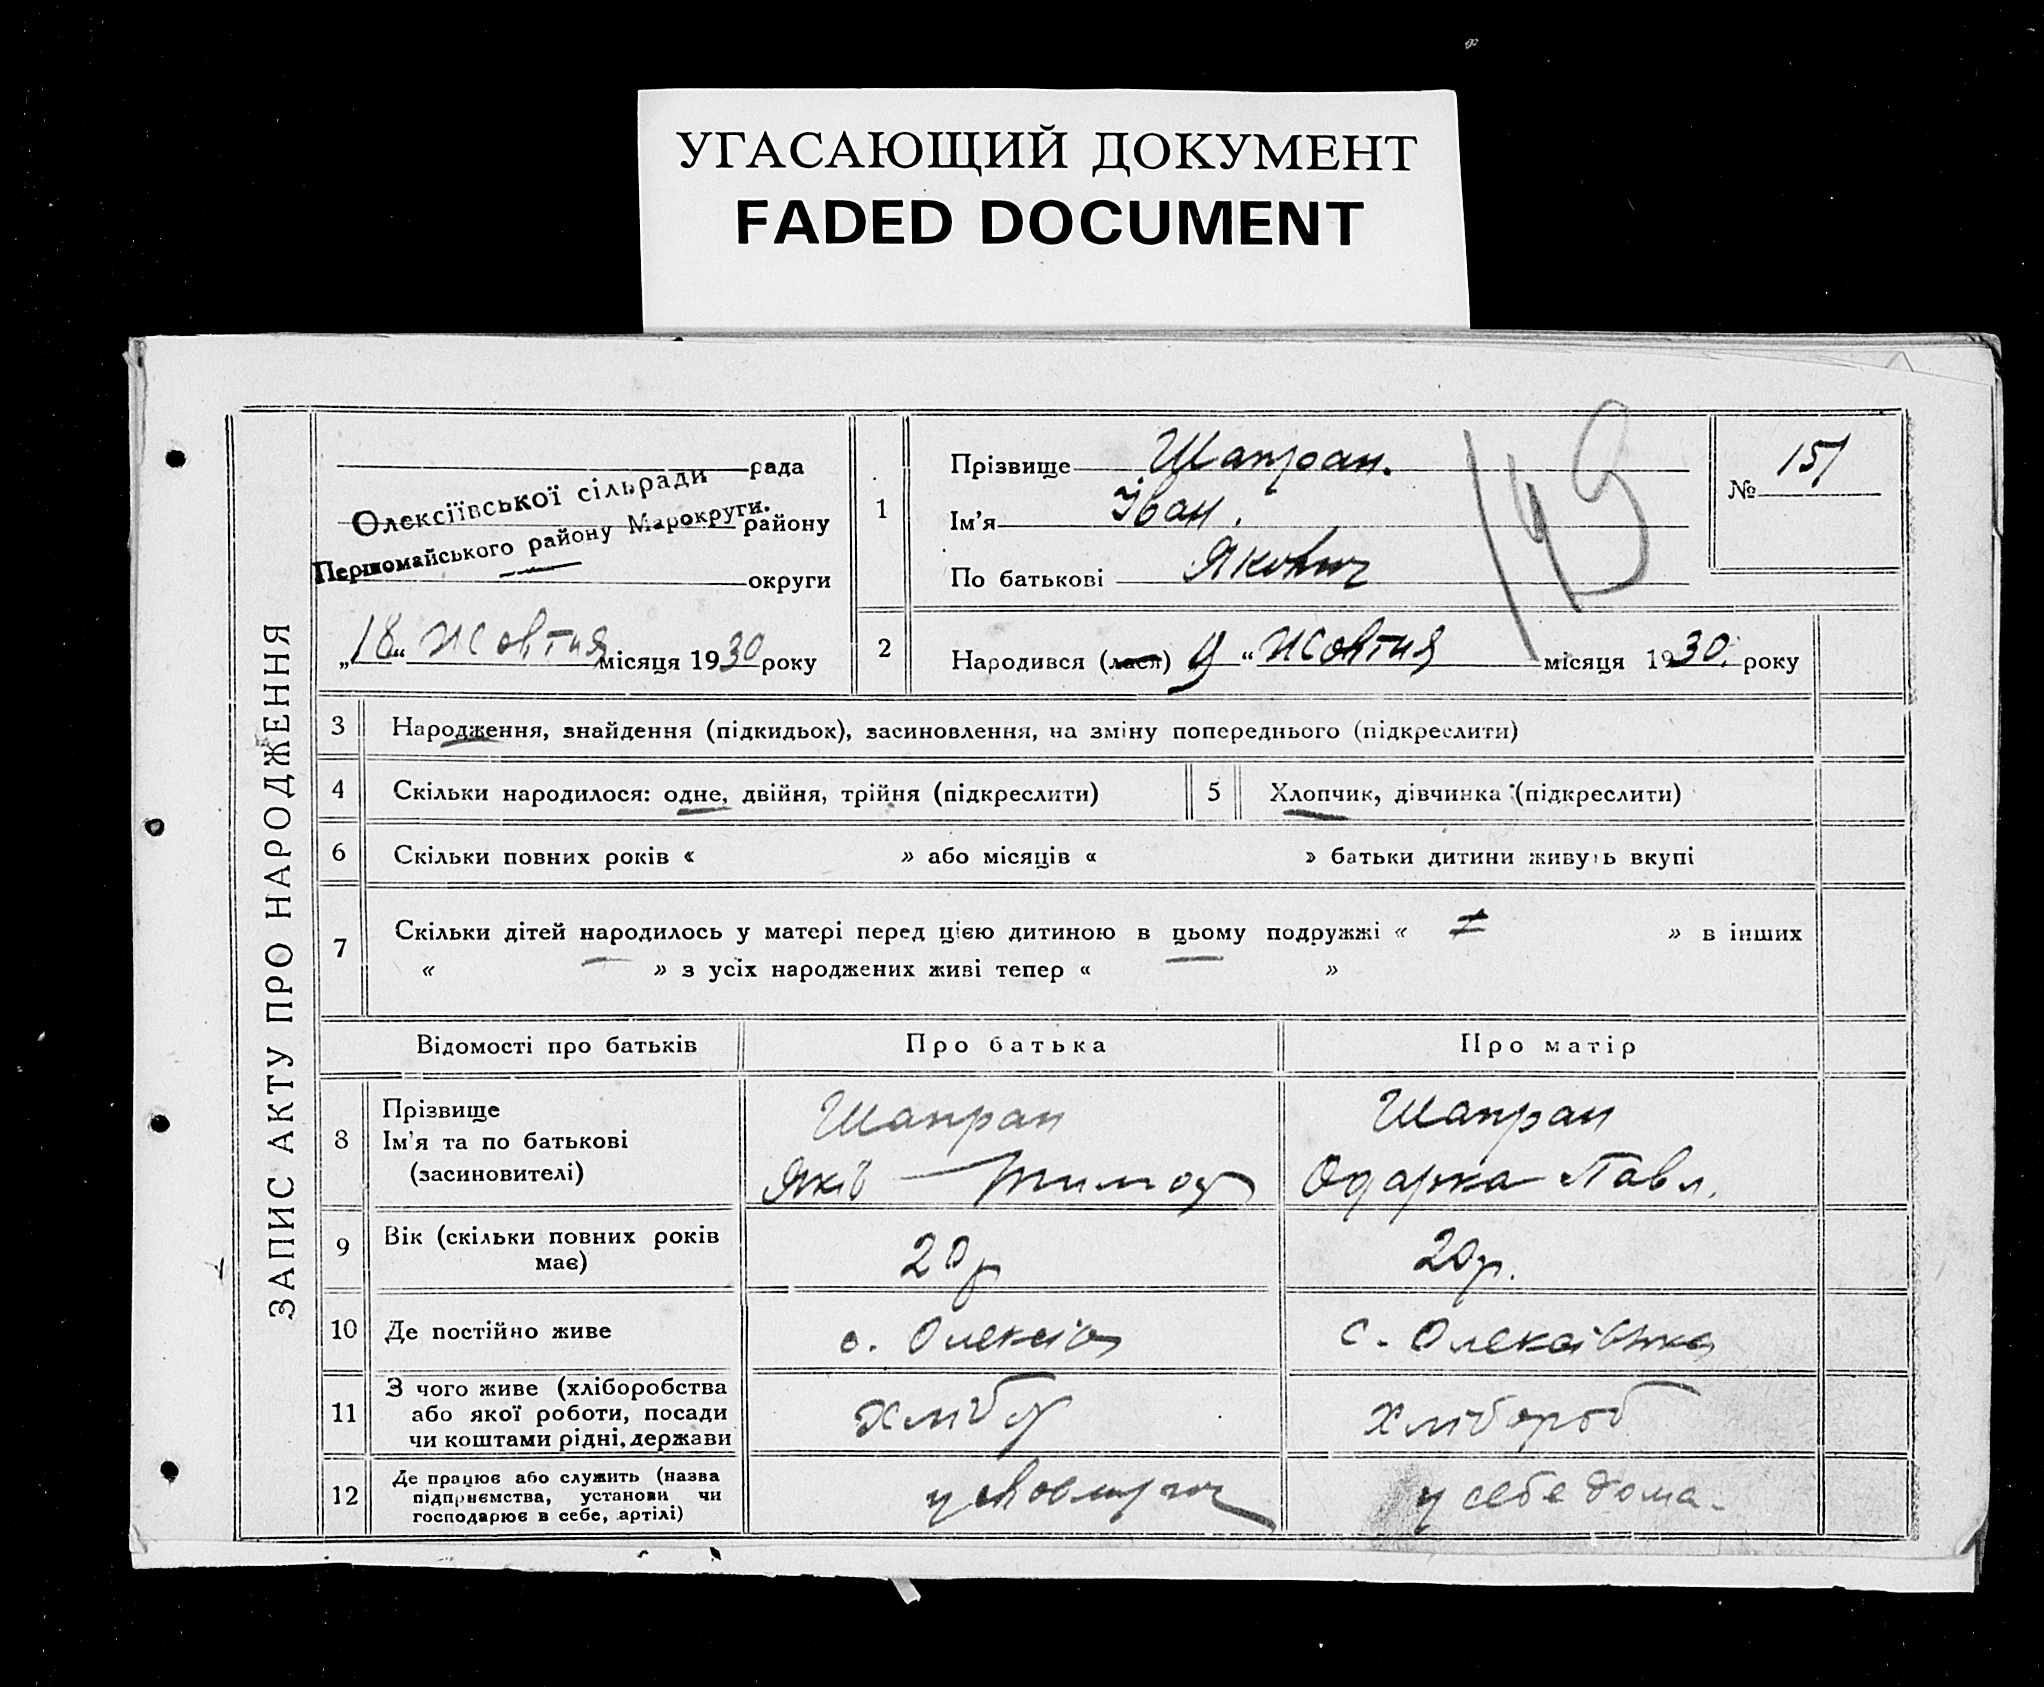 УГАСАЮЩИЙ ДОКУМЕНТ
FADED DOCUMENT
ЗАПИС АКТУ ПРО НАРОДЖЕННЯ
рада
Олексіївської сільради
Першомайського району Марокруги.
району
округи
„18“ Жовтня місяця 1930 року
1
Прізвище Шапран.
Ім'я Іван.
По батькові Якович
143
№ 151
2
Народився (лася) 9 “ Жовтня місяця 1930. року
3 Народження, знайдення (підкидьох), засиновлення, на зміну попереднього (підкреслити)
4 Скільки народилося: одне, двійня, трійня (підкреслити)
5 Хлопчик, дівчинка (підкреслити)
6 Скільки повних років « » або місяців « » батьки дитини живуть вкупі
7 Скільки дітей народилось у матері перед цією дитиною в цьому подружжі « » в інших
« » з усіх народжених живі тепер « »
Відомості про батьків Про батька Про матір
8 Прізвище
Ім'я та по батькові
(засиновителі)
Шапран
Яків Тимоф
Шапран
Одарка Павл.
9 Вік (скільки повних років
має)
20р
20р.
10 Де постійно живе с. Олексіів с. Олексіівка
11 З чого живе (хліборобства
або якої роботи, посади
чи коштами рідні, держави
хліб
хлібороб
12 Де працює або служить (назва
підприємства, установи чи
господарює в себе, артілі)
у
у себе дома.